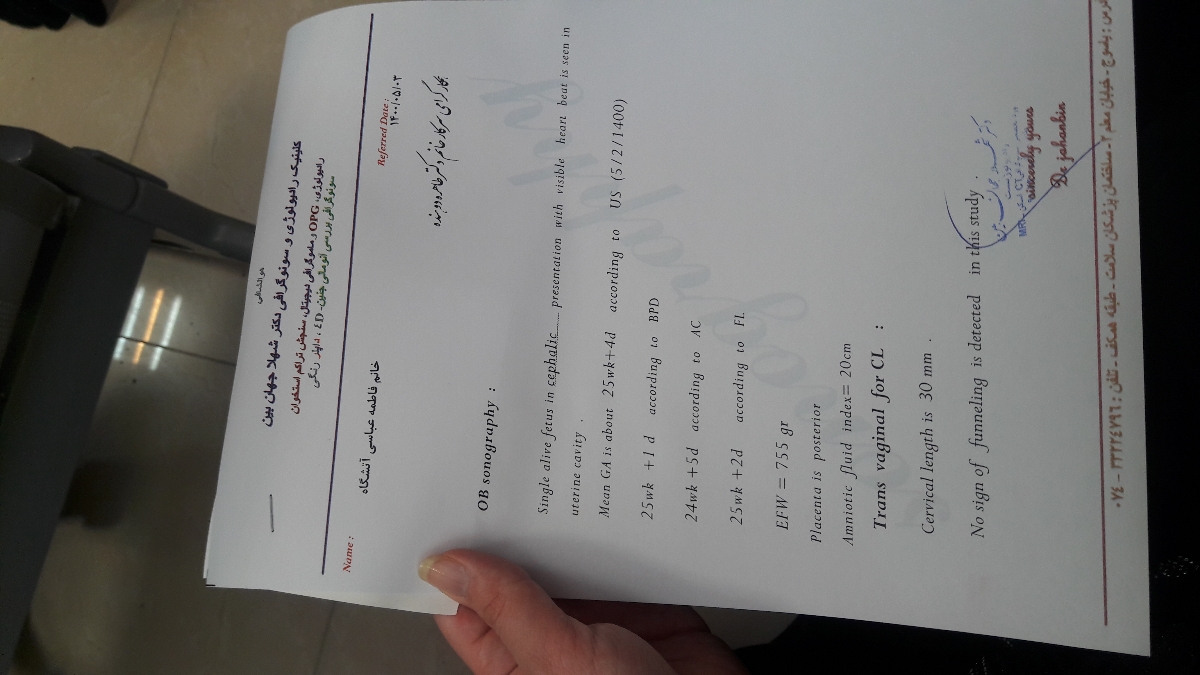 هو الشافی
کلینیک رادیولوژی و سونوگرافی دکتر شهلا جهان بین
رادیولوژی، OPG و ماموگرافی دیجیتال، سنجش تراکم استخوان
سونوگرافی بررسی آنومالی جنین، 4D، داپلر رنگی
Name : خانم فاطمه عباسی آتشگاه
Referred Date :
۱۴۰۰/۰۵/۰۳
همکار گرامی سرکار خانم دکتر طاهره دوبنده
OB sonography :
Single alive fetus in cephalic presentation with visible heart beat is seen in
uterine cavity .
Mean GA is about 25wk+4d according to US (5/2/1400)
25wk +1 d according to BPD
24wk +5d according to AC
25wk +2d according to FL
EFW = 755 gr
Placenta is posterior
Amniotic fluid index= 20cm
Trans vaginal for CL :
Cervical length is 30 mm .
No sign of funneling is detected in this study .
sincerely yours
Dr jahanbin
آدرس : یاسوج - خیابان معلم ۲ - ساختمان پزشکان سلامت - طبقه همکف - تلفن : ۳۳۲۲۴۷۹۶ - ۰۷۴